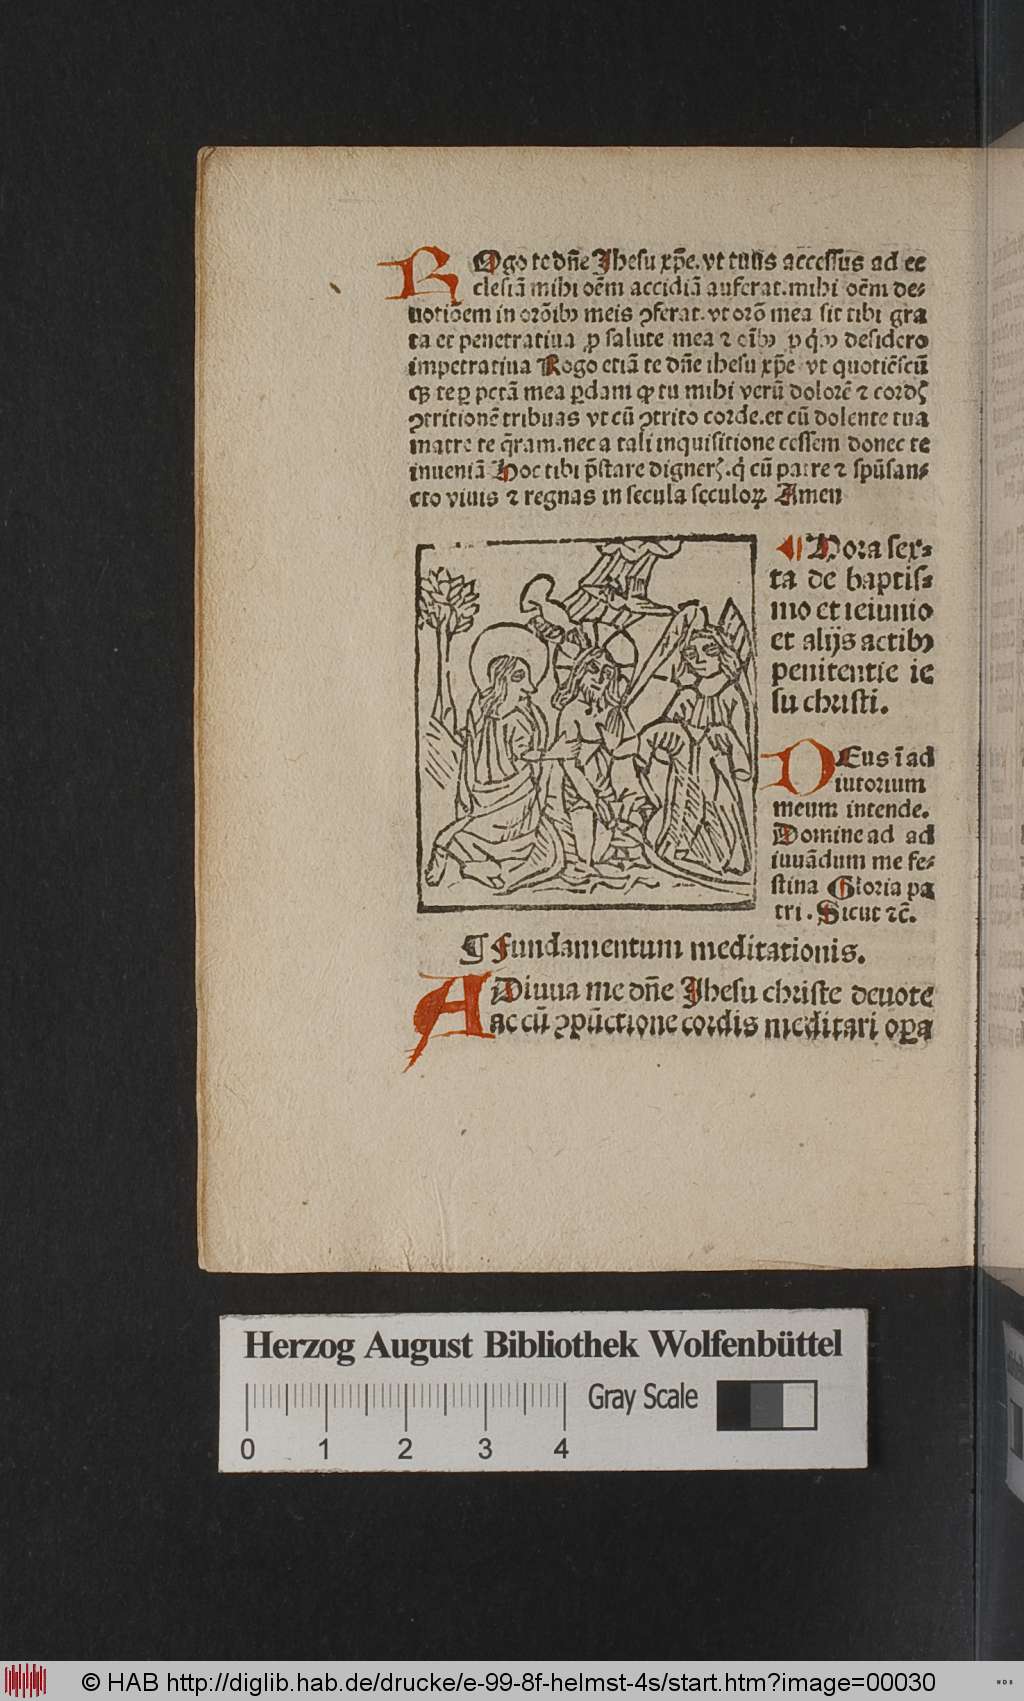 ROgo te dñe Jhesu xp̃e. vt tuus accessus ad ec
clesiã mihi oẽm accidiã auferat. mihi oẽm de⸗
uotiõem in orõibꝫ meis ꝯferat. vt orõ mea sit tibi gra
ta et penetratiua ꝓ salute mea ⁊ oĩbꝫ ꝓ q̇bꝫ desidero
impetratiua Rogo etiã te dñe ihesu xp̃e vt quotiẽscũ
qꝫ te ꝑ pctã mea ꝑdam ꝙ tu mihi verũ dolorẽ ⁊ cordꝭ
ꝯtritionẽ tribuas vt cũ ꝯtrito corde. et cũ dolente tua
matre te q̃ram. nec a tali inquisitione cessem donec te
inueniã Hoc tibi p̃stare dignerꝭ. q̇ cũ patre ⁊ spũsan⸗
cto viuis ⁊ regnas in secula seculoꝝ Amen
¶ Hora sex⸗
ta de baptis⸗
mo et ieiunio
et alijs actibꝫ
penitentie ie
su christi.
DEus ĩ ad
iutorium
meum intende.
Domine ad ad
iuuãdum me fe⸗
stina Gloria pa
tri. Sicut ⁊c̃.
¶ Fundamentum meditationis.
ADiuua me dñe Jhesu christe deuote
ac cũ ꝯpũctione cordis meditari oꝑa
Herzog August Bibliothek Wolfenbüttel
Gray Scale
0 1 2 3 4
© HAB http://diglib.hab.de/drucke/e-99-8f-helmst-4s/start.htm?image=00030